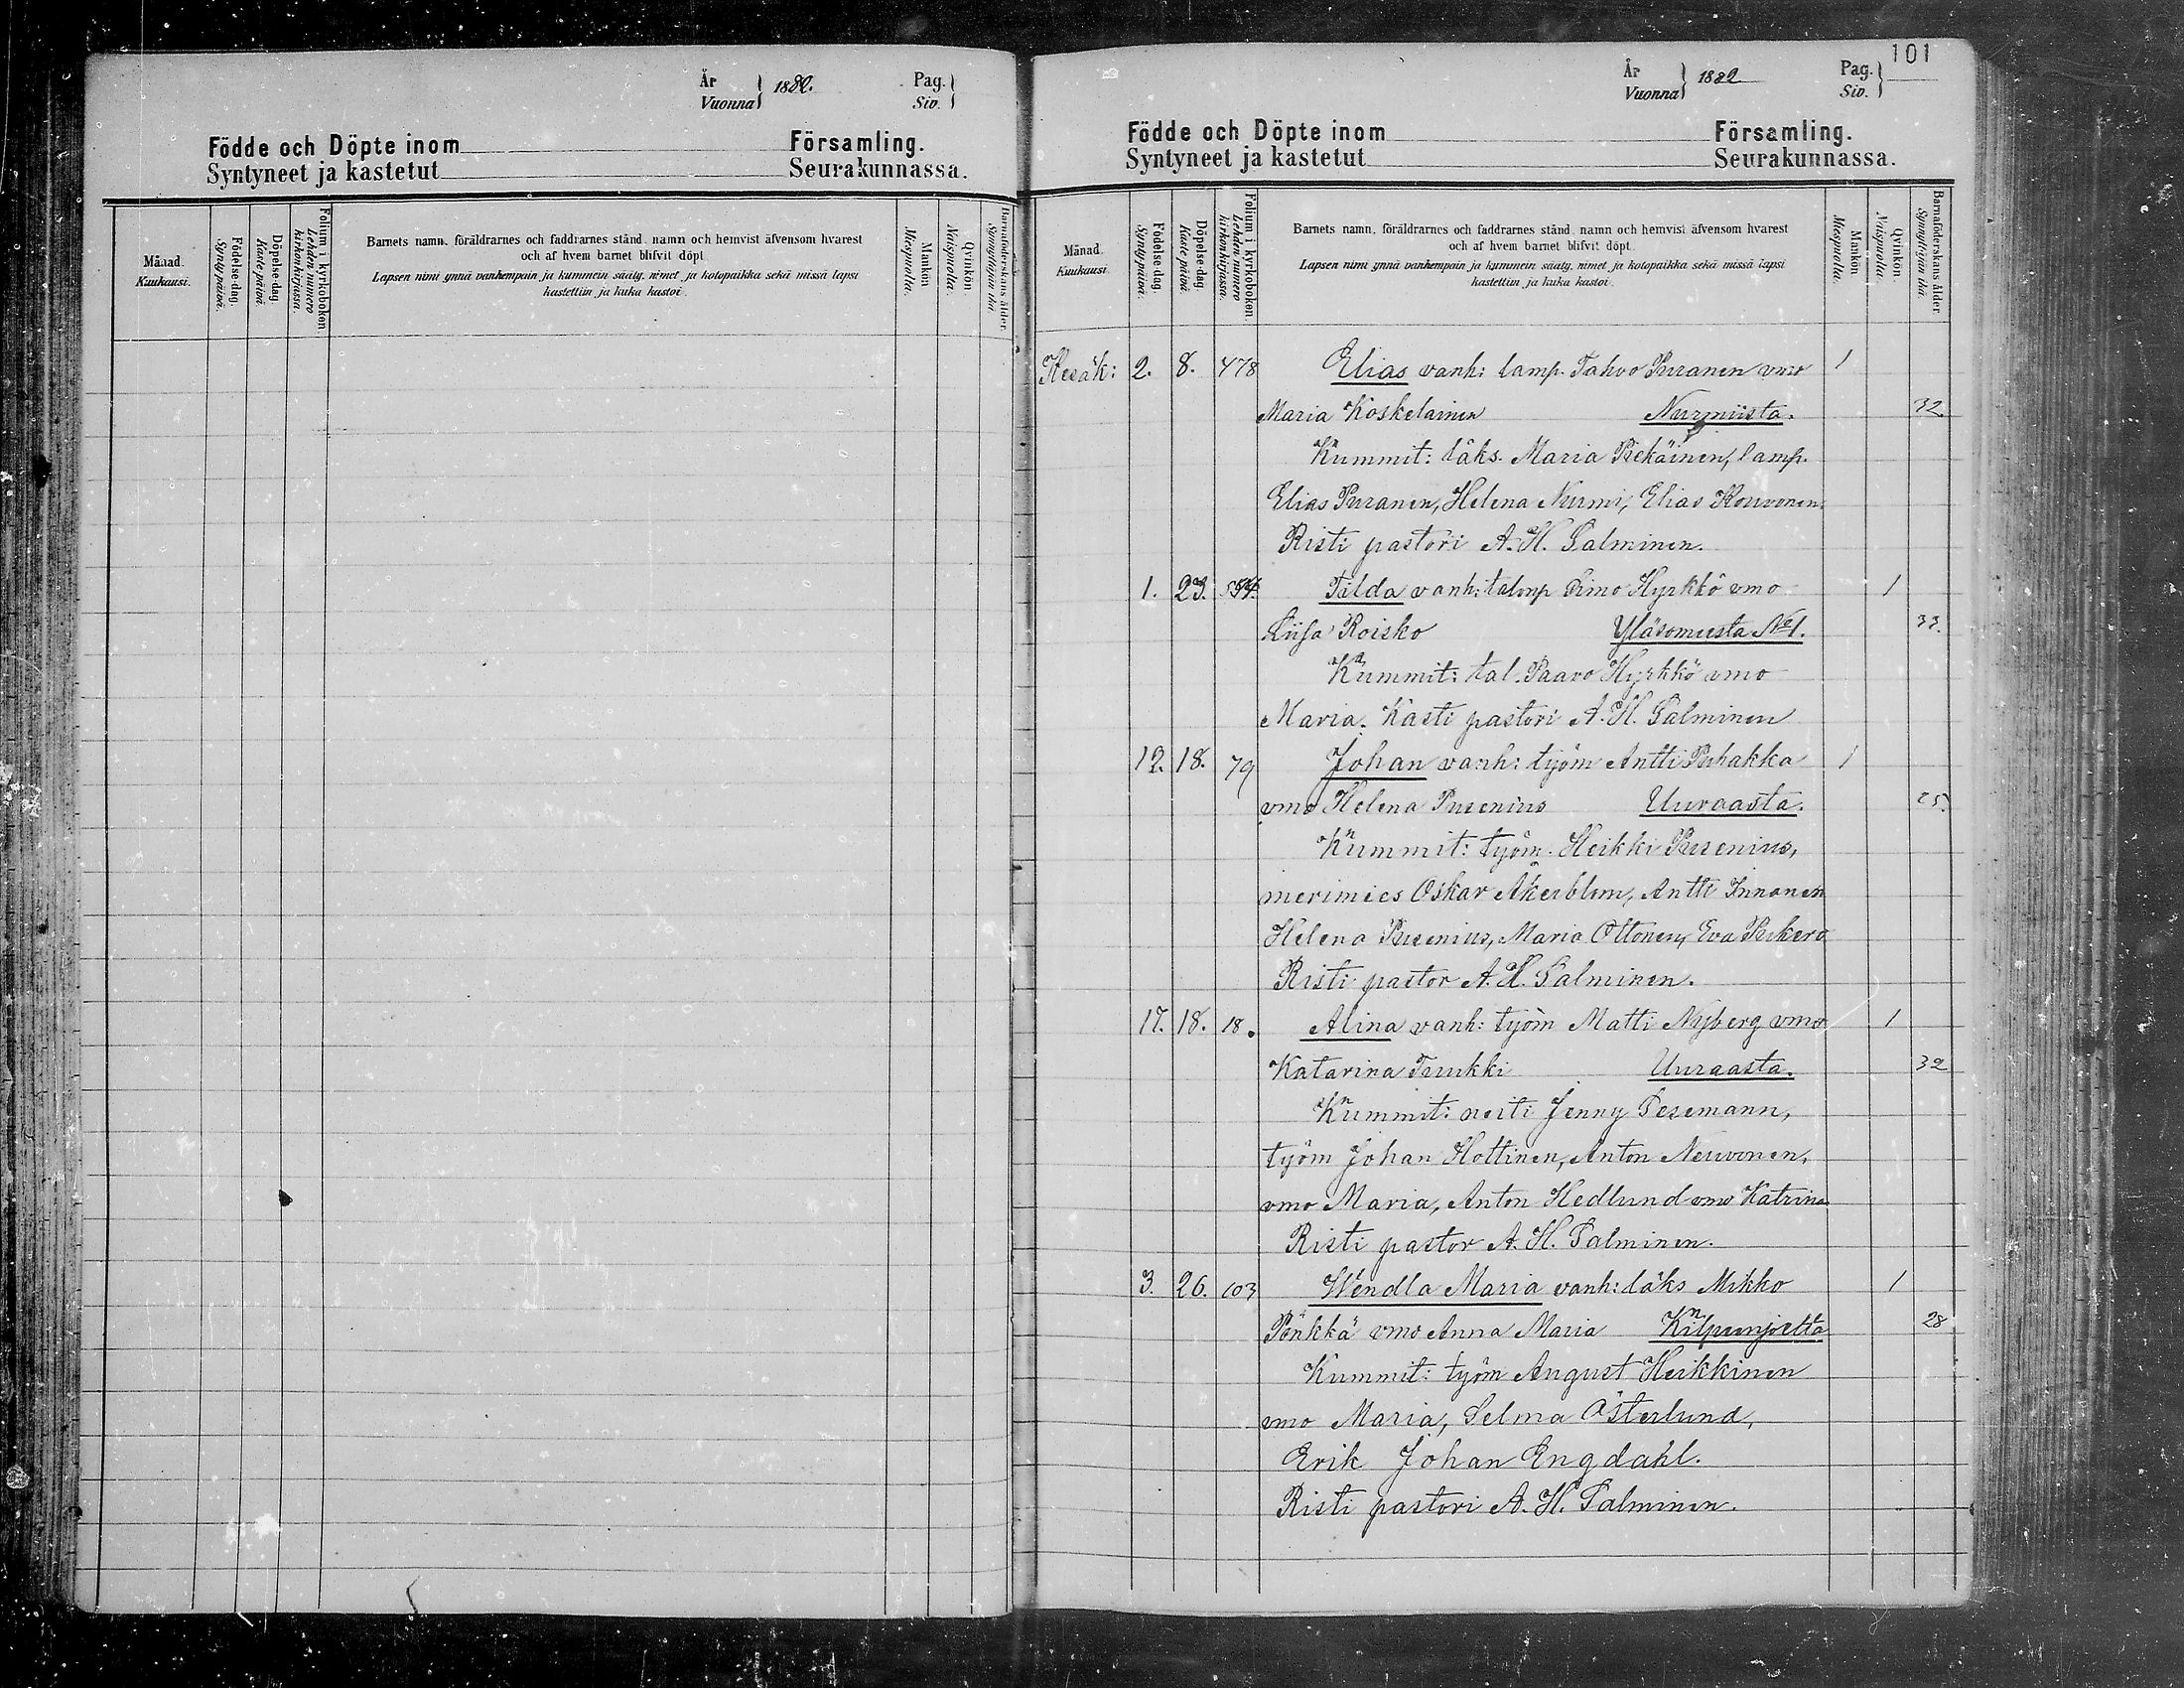 År
Vuonna } 1882.
Pag.
Siv. }
Födde och Döpte inom Församling.
Syntyneet ja kastetut Seurakunnassa.
Månad.
Kuukausi.
Födelse-dag.
Synty päivä.
Döpelse-dag.
Kaste päivä.
Folium i kyrkoboken.
Lehden numero kirkonkirjassa.
Barnets namn, föräldrarnes och faddrarnes stånd, namn och hemvist äfvensom hvarest
och af hvem barnet blifvit döpt
Lapsen nimi ynnä vanhempain ja kummein sääty, nimet ja kotopaikka sekä missä lapsi
kastettiin ja kuka kastoi.
Mankön
Miespuolia.
Qvinkön.
Naispuolia.
Barnaföderskans ålder.
Synnyttäjän ikä.
101
År
Vuonna } 1882
Pag.
Siv. }
Födde och Döpte inom Församling.
Syntyneet ja kastetut Seurakunnassa.
Månad.
Kuukausi.
Födelse-dag.
Synty päivä.
Döpelse-dag.
Kaste päivä.
Folium i kyrkoboken.
Lehden numero kirkonkirjassa.
Barnets namn, föräldrarnes och faddrarnes stånd, namn och hemvist äfvensom hvarest
och af hvem barnet blifvit döpt.
Lapsen nimi ynnä vanhempain ja kummein sääty, nimet ja kotopaikka sekä missä lapsi
kastettiin ja kuka kastoi.
Mankön
Miespuolia.
Qvinkön.
Naispuolia.
Barnaföderskans ålder.
Synnyttäjän ikä.
Kesäk: 2. 8. 478 Elias vanh: lamp. Tahvo Puranen vmo 1
Maria Koskelainen Nurmiista. 32
Kummit: läks. Maria Pekäinen, lamp.
Elias Puranen, Helena Nurmi, Elias Kouvonen.
Risti pastori A. H. Salminen.
1. 23. Tilda vanh: talonp Simo Hyrkkö vmo 1
Liisa Roisko Yläsomeesta No 1. 33.
Kummit: tal. Paavo Hyrkkö vmo
Maria. Kasti pastori A. H. Salminen
12. 18. 79 Johan vanh: työm Antti Puhakka 1
vmo Helena Pusenius Uuraasta. 25.
Kummit: työm. Heikki Pusenius,
merimies Oskar Åkerblom, Antti Innanen
Helena Pusenius, Maria Ottonen, Eva Pukero
Risti pastor A. H. Salminen.
17. 18. 18. Alina vanh: työm Matti Nyberg vmo 1
Katarina Truukki Uuraasta. 32
Kummit: neiti Jenny Sesemann,
työm Johan Hottinen, Anton Neuvonen,
vmo Maria, Anton Hedlund vmo Katrina
Risti pastor A. H. Salminen.
3. 26. 103 Wendla Maria vanh: läks Mikko 1
Pönkkä vmo Anna Maria Kilpeenjoelta 28
Kummit: työm August Heikkinen
vmo Maria, Selma Österlund,
Erik Johan Engdahl.
Risti pastori A. H. Salminen.